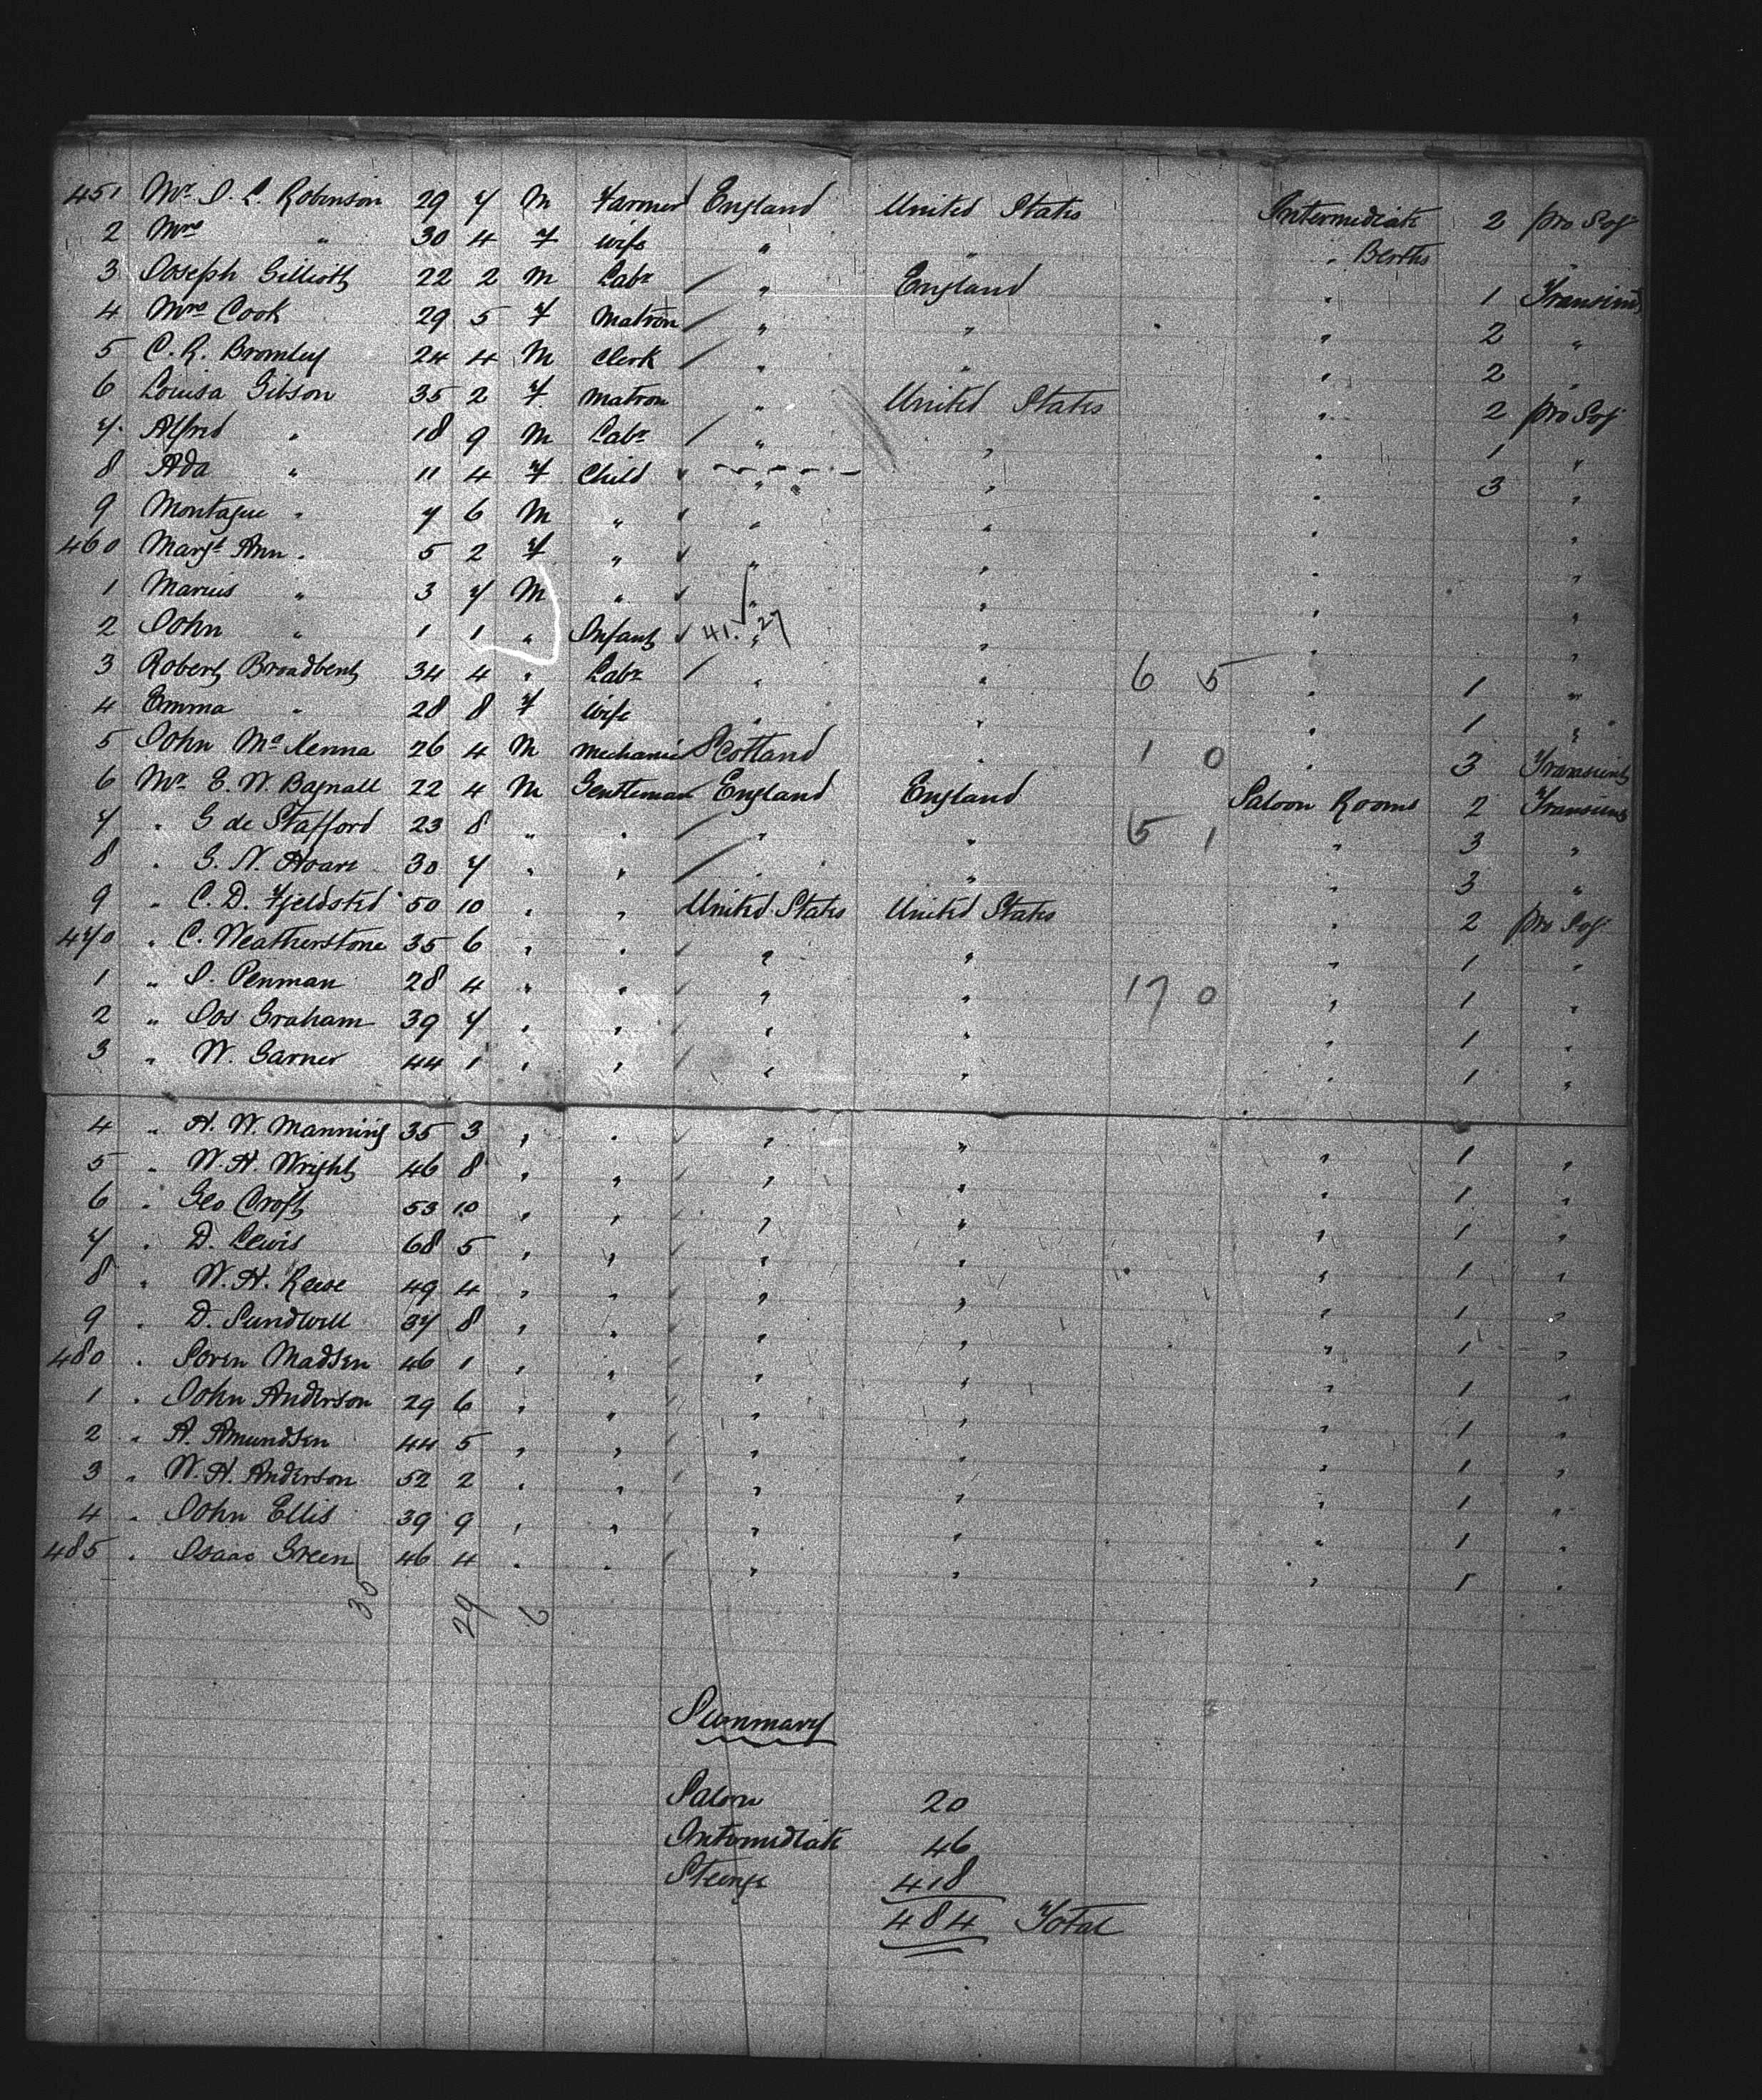 451 Mr J. L. Robinson 29 7 M Farmer England United States Intermediate 2 pro Soj
2 Mrs " 30 4 F Wife " " " Berths "
3 Joseph Gilliott 22 2 M Labr / " England " 1 Transient
4 Mrs Cook 29 5 F Matron / " " " 2 "
5 C. R. Bromley 24 4 M Clerk / " " " 2 "
6 Louisa Gibson 35 2 F Matron " United States " 2 pro Soj
7 Alfred " 18 9 M Labr / " " " 1 "
8 Ada " 11 4 F Child " " " 3 "
9 Montague " 7 6 M " " " " "
460 Margt Ann " 5 2 F " " " " "
1 " 3 7 M " " " " "
2 John " 1 1 " Infant 41. 27 " " " "
3 Robert Broadbent 34 4 " Labr / " " 6 5 " 1 "
4 Emma " 28 8 F Wife " " " 1 "
5 John McKenna 26 4 M Mechanic Scotland " 1 0 " 3 Transient
6 Mr E. W. Bagnall 22 4 M Gentleman England England Saloon Rooms 2 Transient
7 " G de Stafford 23 8 " " / " " 5 1 " 3 "
8 " G. N. Hoare 30 7 " " / " " " 3 "
9 " C. D. Fjeldsted 50 10 " " United States United States " 2 pro Soj
470 " C. Weatherstone 35 6 " " " " " 1 "
1 " J. Penman 28 4 " " " " 17 0 " 1 "
2 " Jos Graham 39 7 " " " " " 1 "
3 " W. Garner 44 1 " " " " " 1 "
4 " H. W. Manning 35 3 " " " " " 1 "
5 " W. H. Wright 46 8 " " " " " 1 "
6 " Geo Croft 53 10 " " " " " 1 "
7 " D. Lewis 68 5 " " " " " 1 "
8 " W. H. 49 4 " " " " " 1 "
9 " D. Sundwell 37 8 " " " " " 1 "
480 " Soren Madsen 46 1 " " " " " 1 "
1 " John Anderson 29 6 " " " " " 1 "
2 " A. Amundsen 44 5 " " " " " 1 "
3 " W. H. Anderson 52 2 " " " " " 1 "
4 " John Ellis 39 9 " " " " " 1 "
485 " Isaac Green 46 4 " " " " " 1 "
35 29 6
Summary
Saloon 20
Intermediate 46
Steerge 418
484 Total